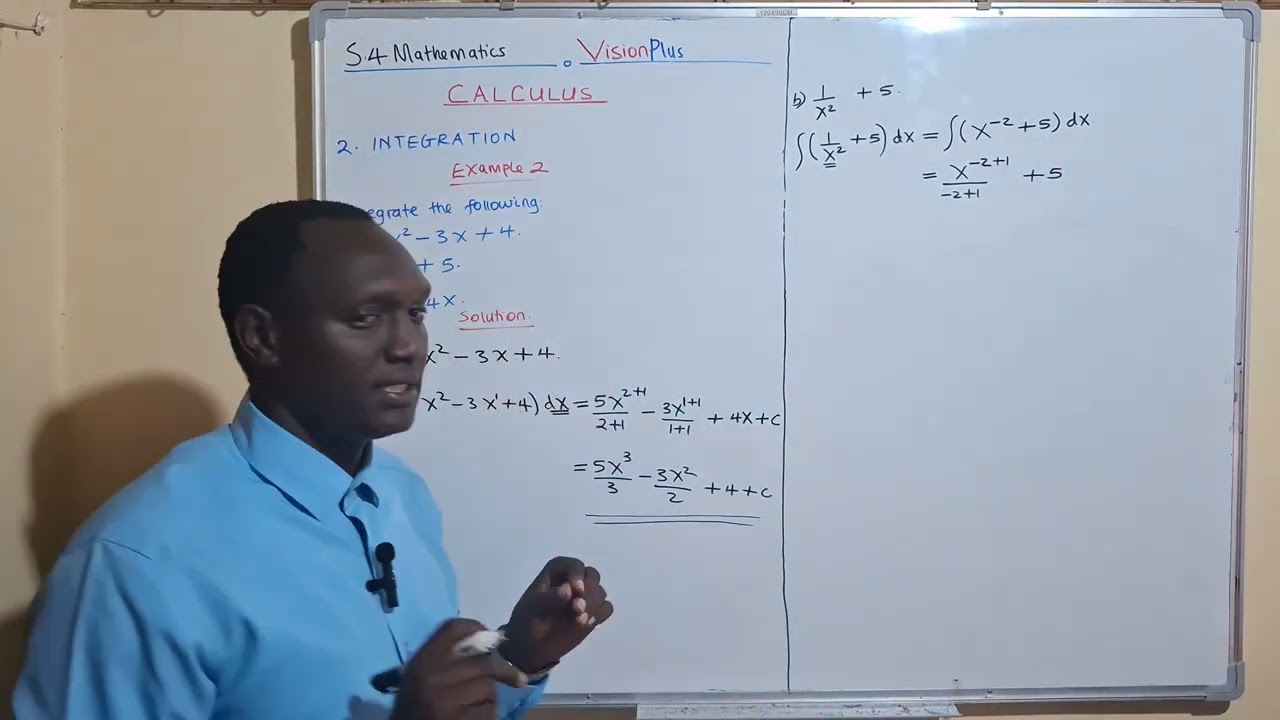 120X90CM
S.4 Mathematics VisionPlus
CALCULUS
2. INTEGRATION
Example 2
egrate the following:
x² − 3x + 4.
+ 5.
4x.
Solution.
x² − 3x + 4.
x² − 3x¹ + 4) dx = 5x²⁺¹/2+1 − 3x¹⁺¹/1+1 + 4x + c
= 5x³/3 − 3x²/2 + 4 + c
b) 1/x² + 5.
∫(1/x² + 5) dx = ∫(x⁻² + 5) dx
= x⁻²⁺¹/-2+1 + 5